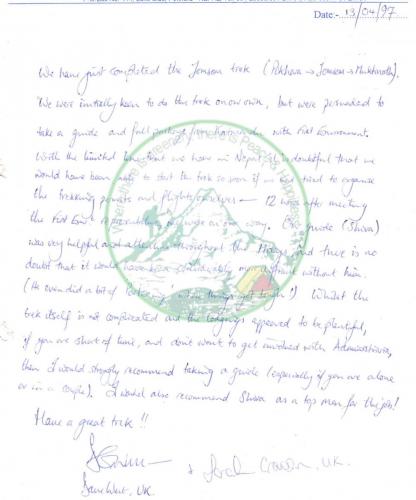 Date:- 13/04/97
We have just completed the Jomsom trek (Pokhara → Jomsom → Muktinath).
We were initially keen to do the trek on our own, but were persuaded to
take a guide and full package from Kathmandu with First Environment.
With the limited time that we have in Nepal, it is doubtful that we
would have been able to start the trek so soon if we had tried to organise
the trekking permits and flights ourselves — 12 hours after meeting
the First Env. representative we were on our way. Our guide (Shiva)
was very helpful and attentive throughout the trek, and there is no
doubt that it would have been considerably more difficult without him.
(He even did a bit of 'portering' when things got tough!) Whilst the
trek itself is not complicated and the lodgings appeared to be plentiful,
if you are short of time, and don't want to get involved with Administration,
then I would strongly recommend taking a guide (especially if you are alone
or in a couple). I would also recommend Shiva as a top man for the job!
Have a great trek !!
+ Sarah UK.
Dave West, UK.
Where there is Green, there is Peace & Happiness